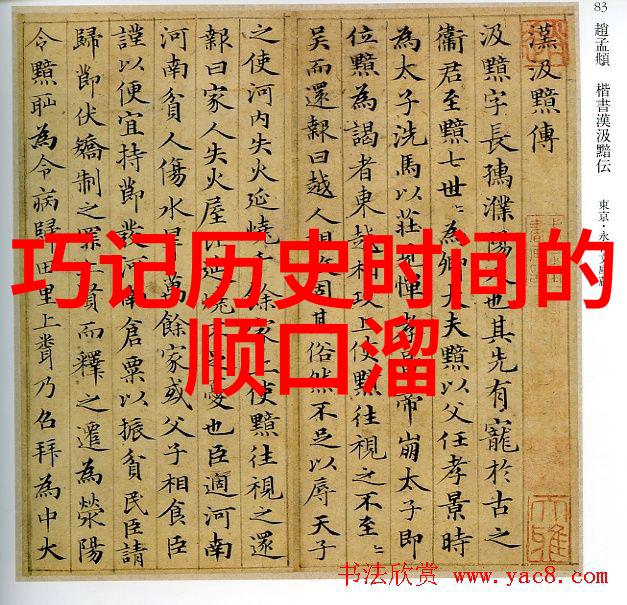 83 趙孟頫 楷書漢汲黯伝 東京・永
漢汲黯傳
汲黯字長孺濮陽人也其先有寵於古之
衞君至黯七世〻為卿大夫黯以父任孝景時
為太子洗馬以莊見憚孝景帝崩太子即
位黯為謁者東越相攻上使黯往視之不至〻
吳而還報曰越人相攻固其俗然不足以辱天子
之使河內失火延燒千餘家上使黯往視之還
報曰家人失火屋比延燒不足憂也臣適河南
河南貧人傷水旱萬餘家或父子相食臣
謹以便宜持節發河南倉粟以振貧民臣請
歸節伏矯制之罪上賢而釋之遷為滎陽
令黯恥為令病歸田里上聞乃召拜為中大
巧记历史时间的
顺口溜
书法欣赏 www.yac8.com